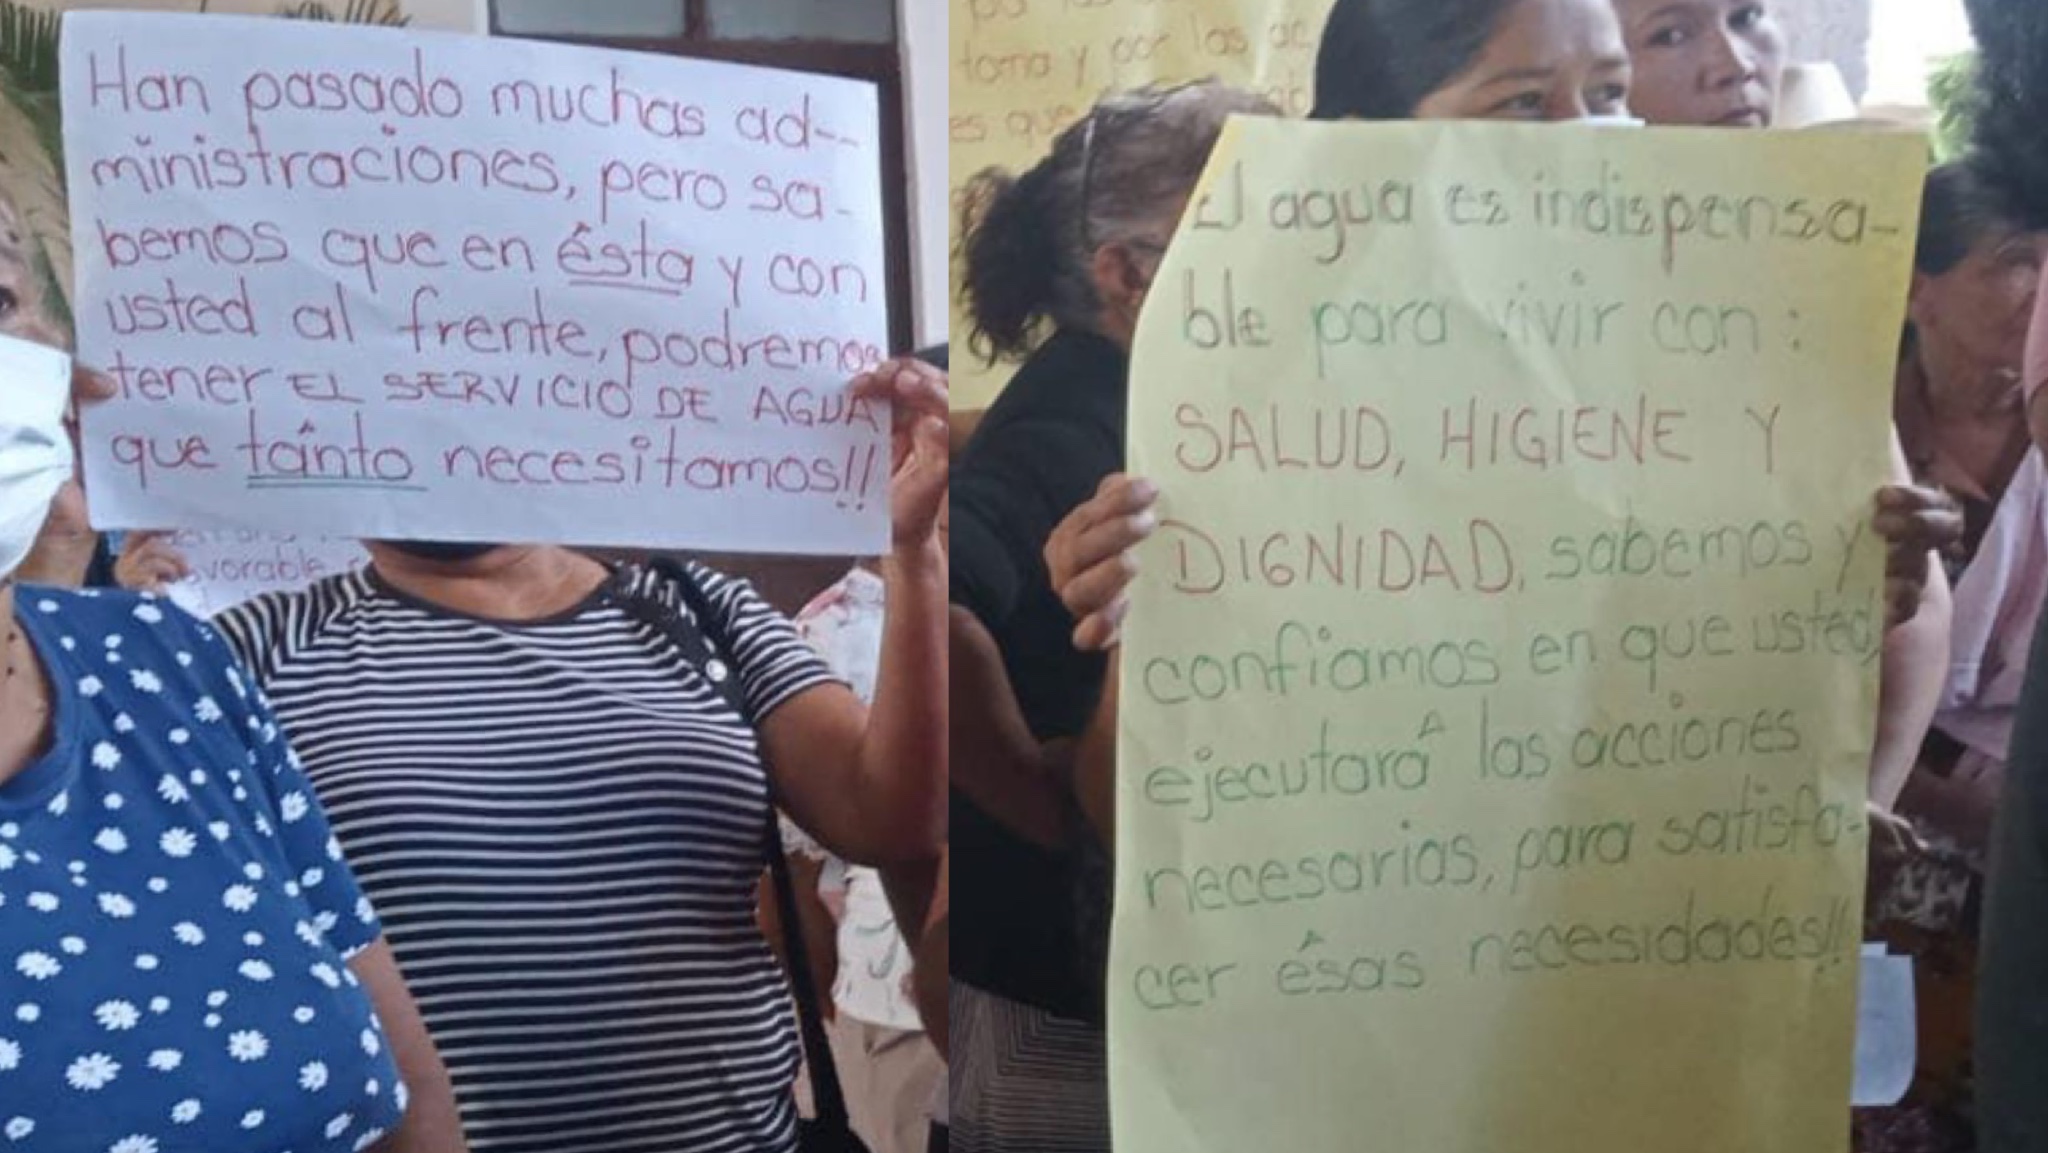 Han pasado muchas ad--
ministraciones, pero sa-
bemos que en ésta y con
usted al frente, podremos
tener EL SERVICIO DE AGUA
que tánto necesitamos!!
vorable
toma y por las ac
es que
El agua es indispensa-
ble para vivir con:
SALUD, HIGIENE Y
DIGNIDAD, sabemos y
confiamos en que usted,
ejecutará las acciones
necesarias, para satisfa-
cer ésas necesidades!!